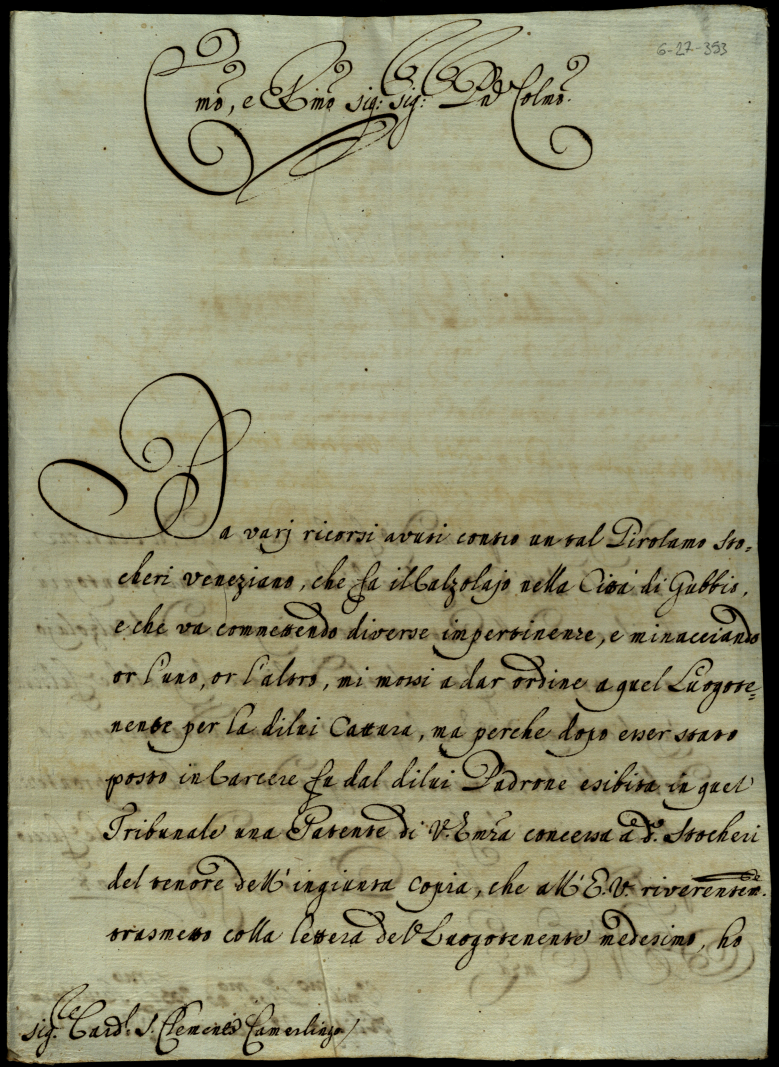 6-27-353
Emo, e Rmo sig: sig: Pne Colmo.
Da varj ricorsi avuti contro un tal Girolamo Sto=
cheri Veneziano, che fa il Calzolajo nella Città di Gubbio,
e che va commettendo diverse impertinenze, e minacciando
or l'uno, or l'altro, mi mossi a dar ordine a quel Luogote=
nente per la dilui Cattura, ma perche dopo esser stato
posto in Carcere fu dal dilui Padrone esibita in quel
Tribunale una Patente di V. Emza concessa a do. Stocheri
del tenore dell'ingiunta Copia, che all'E.V. riverentem.te
trasmetto colla lettera del Luogotenente medesimo, ho
sig.re Card.l S. Clemente Camerlingo